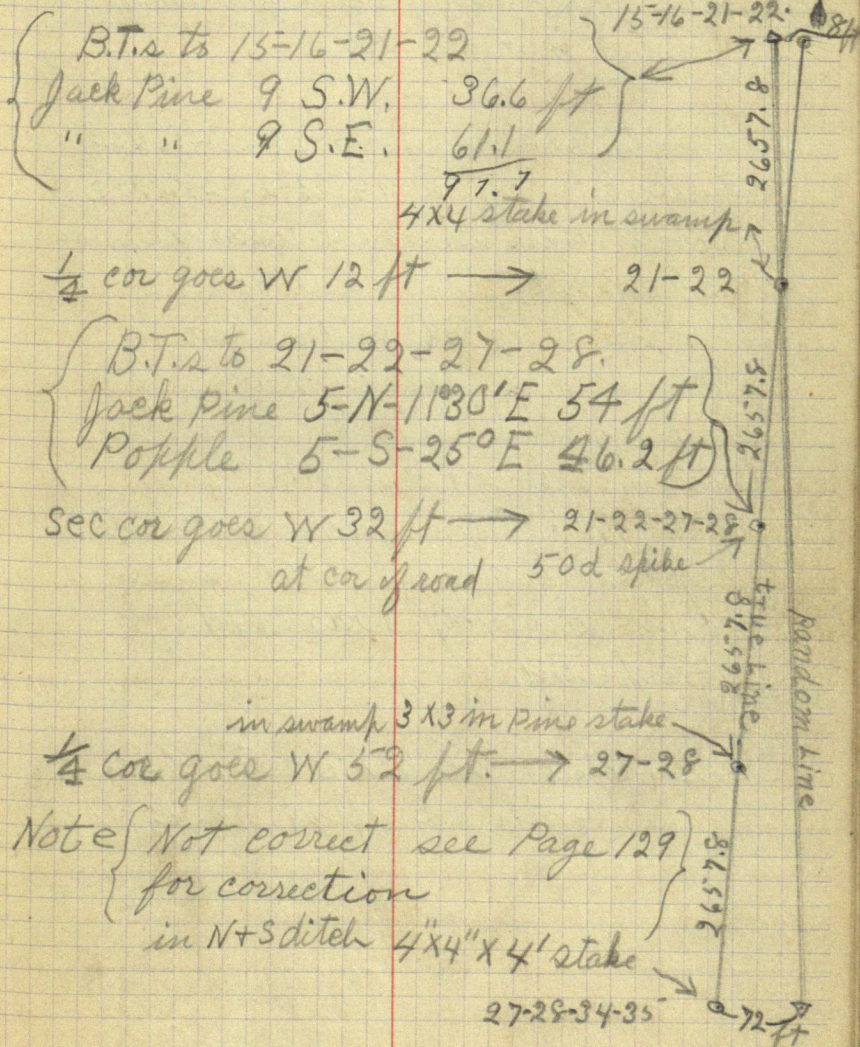 15-16-21-22.
8 ft
B.T.s to 15-16-21-22
Jack Pine 9 S.W. 36.6 ft
" " 9 S.E. 61.1
97.7
2657.8
4x4 stake in swamp
1/4 cor goes W 12 ft → 21-22
B.T.s to 21-22-27-28.
Jack Pine 5-N-11°30'E 54 ft
Popple 5-S-25°E 46.2 ft
2657.8
sec cor goes W 32 ft → 21-22-27-28
at cor of road 50d spike
2657.8
true Line
Random Line
in swamp 3x3 in Pine stake
1/4 cor goes W 52 ft. → 27-28
Note Not correct see Page 129
for correction
2657.8
in N+S ditch 4"x4"x4' stake
27-28-34-35
72 ft